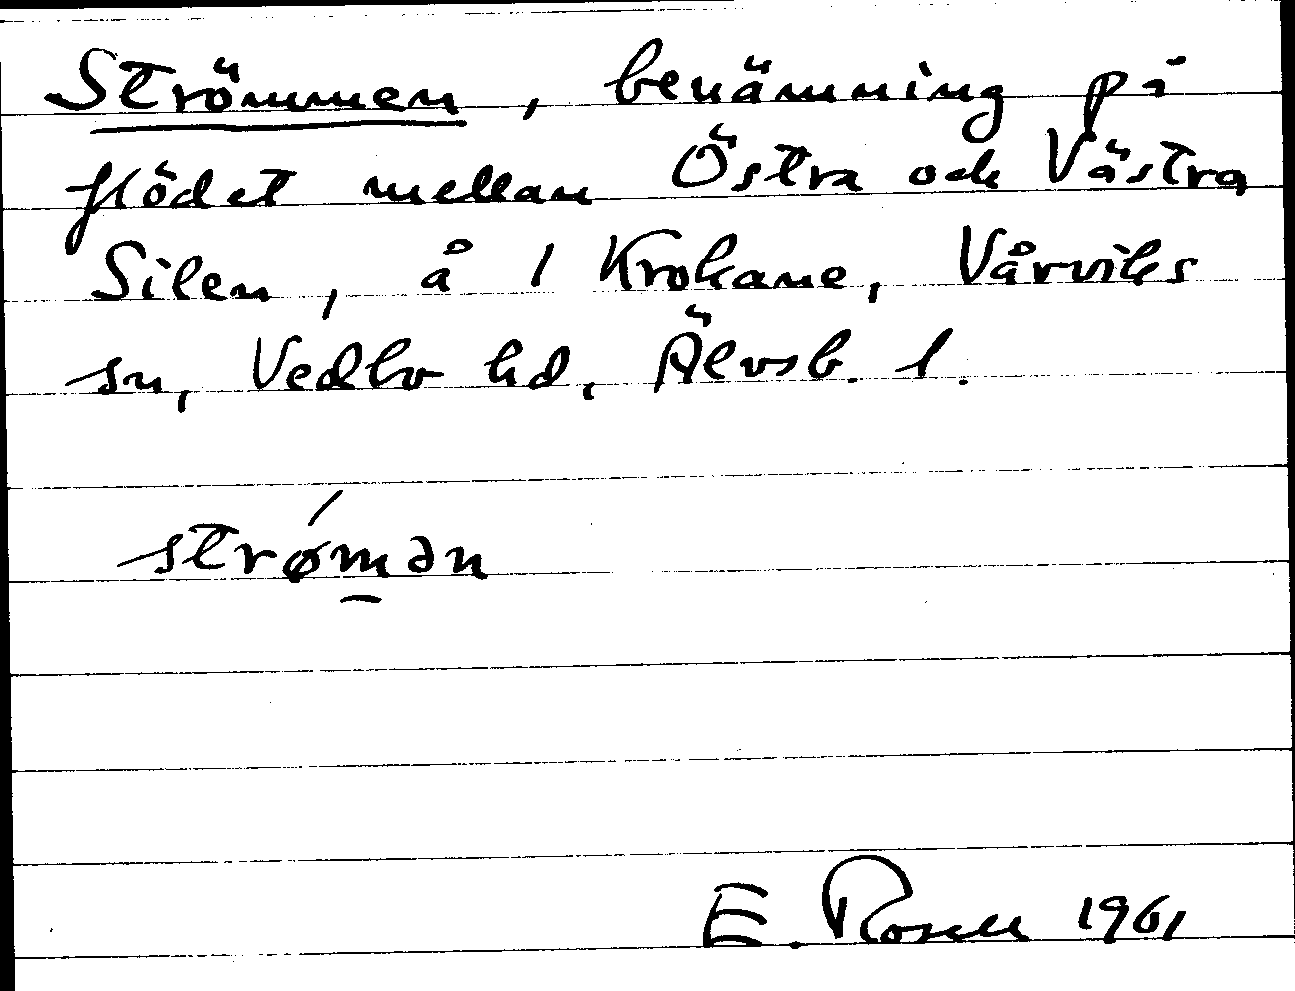 Strömmen, benämning på
flödet mellan Östra och Västra
Silen, å 1 Krokane, Vårviks
sn, Vedbo hd, Älvsb. l.
strǿm̲ən
E. Rosell 1961